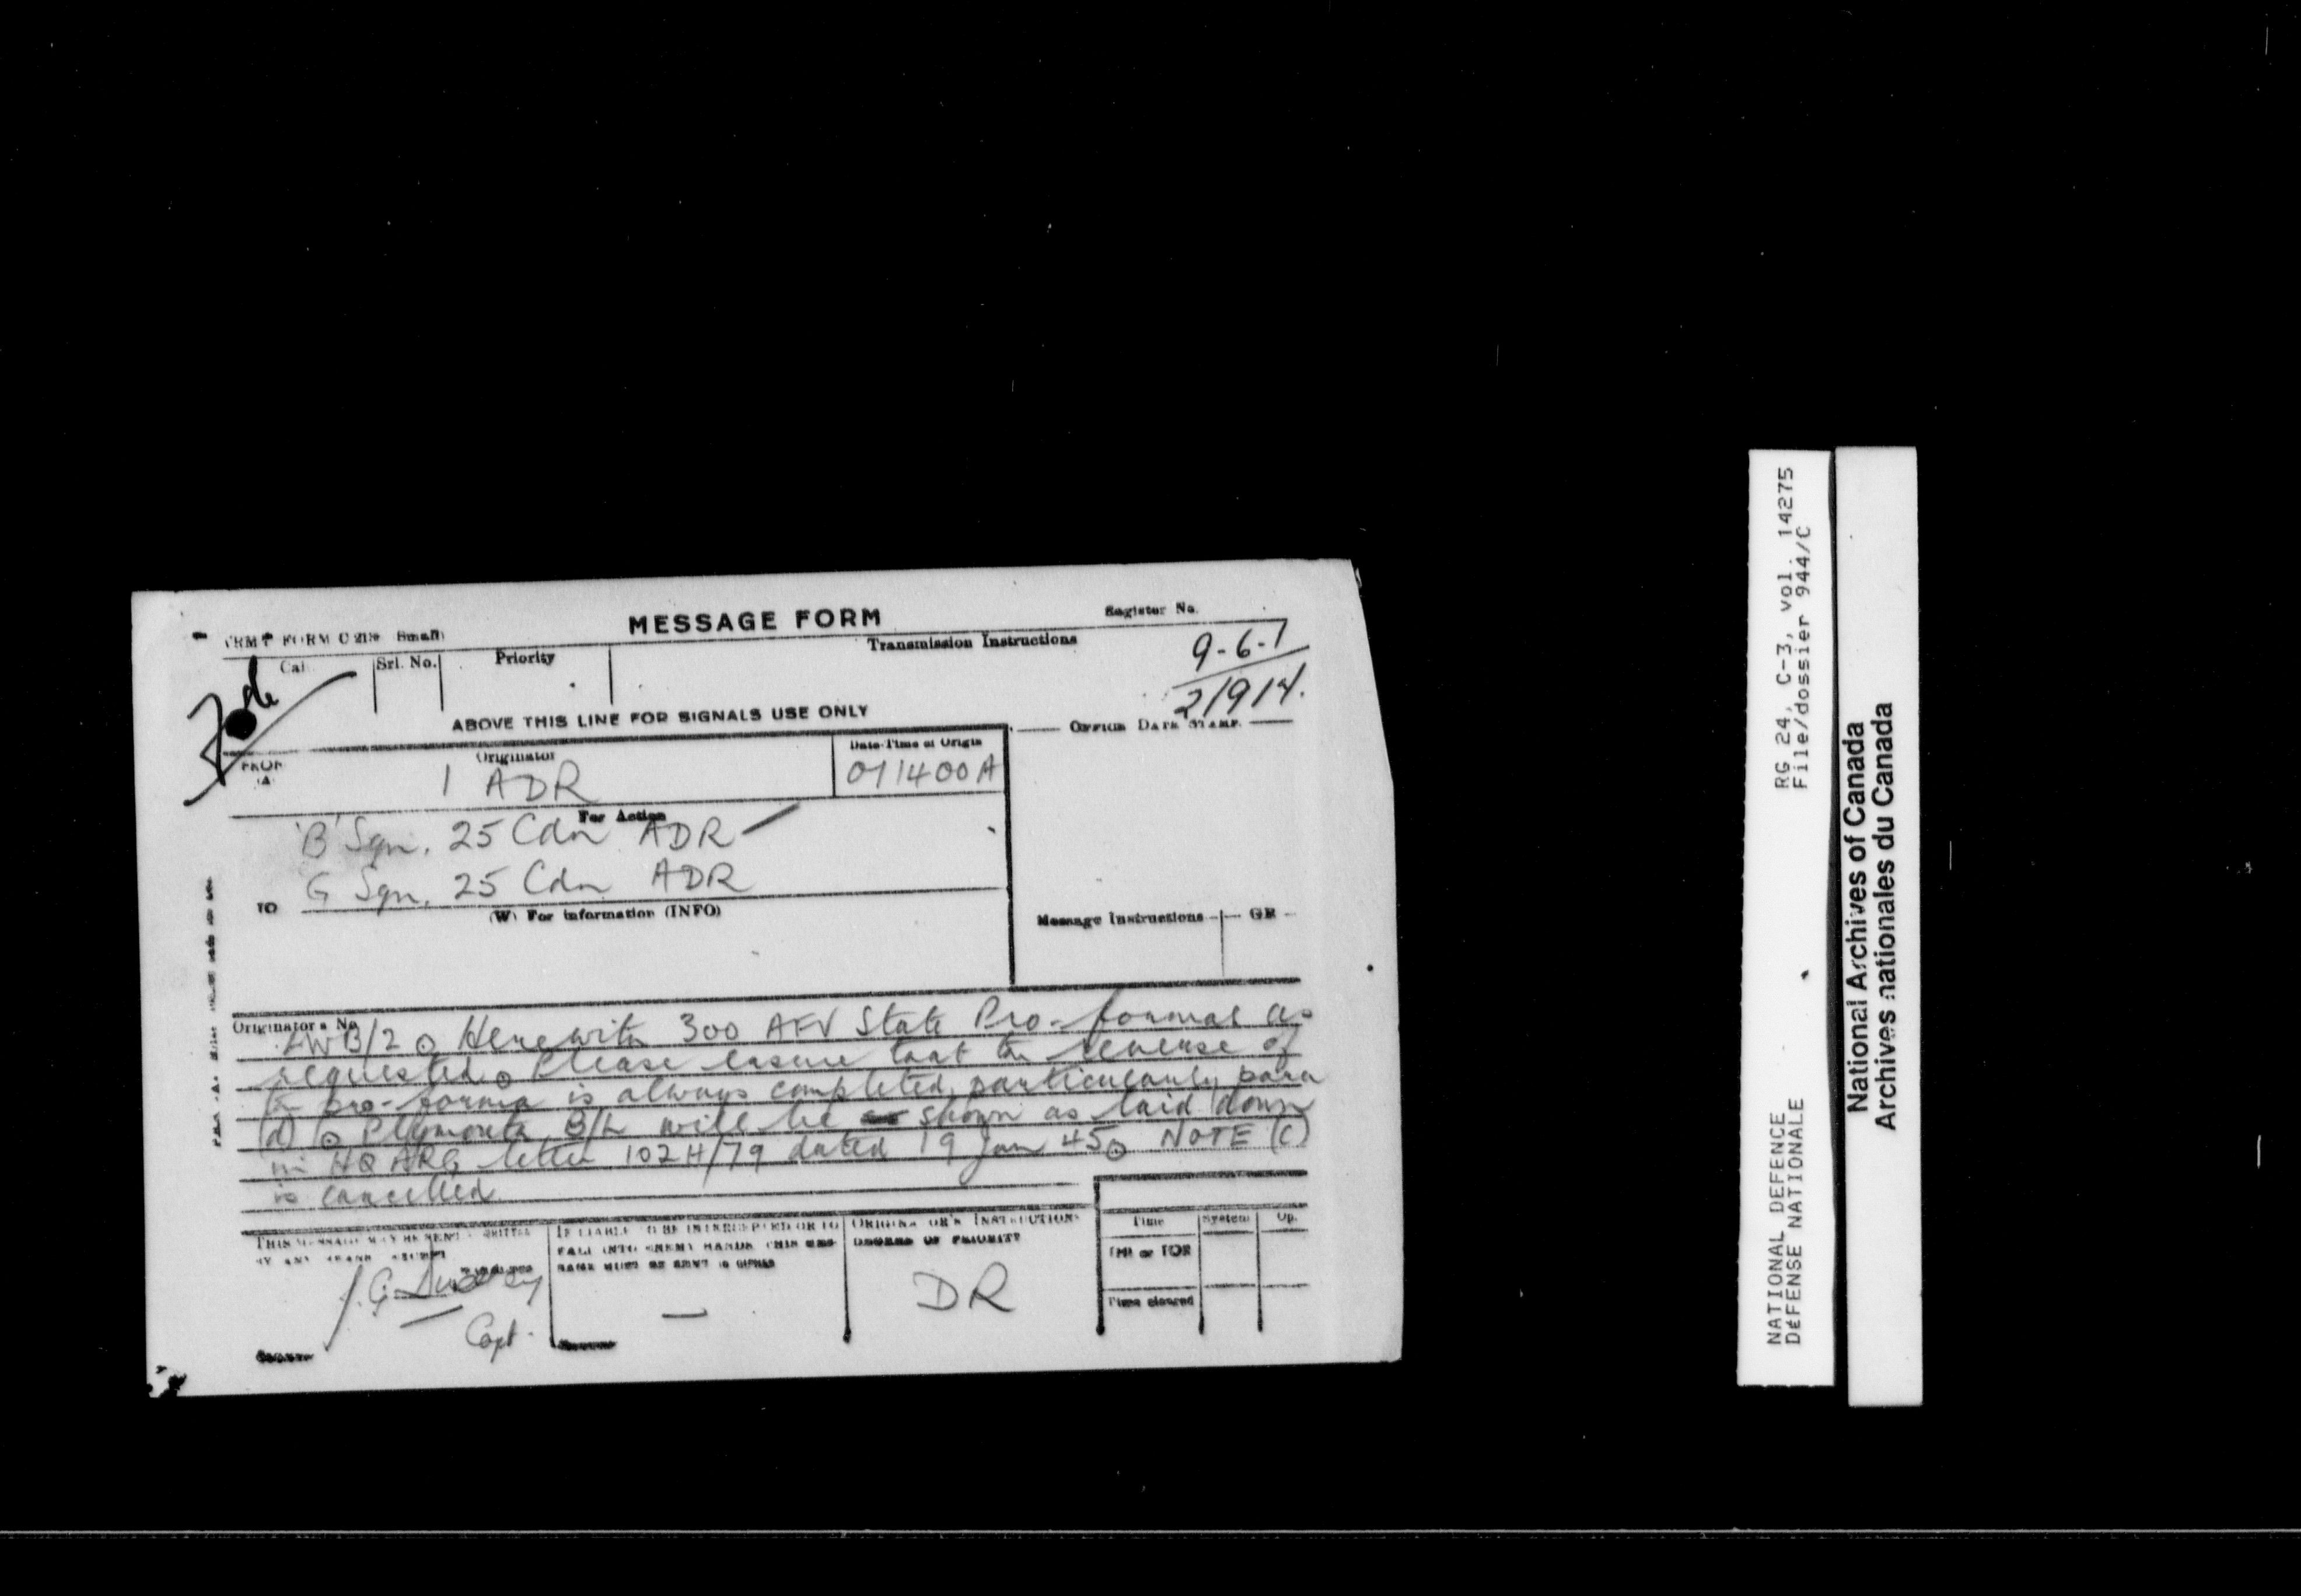 MESSAGE FORM
Register No.
FORM C 2128 Small
Transmission Instructions
Srl. No.
Priority
9-6-1
2/9/14.
ABOVE THIS LINE FOR SIGNALS USE ONLY
OFFICE DATE STAMP
FROM
(A)
Originator
Date-Time of Origin
1 ADR
071400A
For Action
'B' Sqn. 25 Cdn ADR
G Sqn. 25 Cdn ADR
TO
(W) For information (INFO)
Message Instructions
GR
Originator's No.
LWB/2 ⊙ Herewith 300 AFV State Pro-formas as
requested ⊙ Please ensure that the reverse of
the pro-forma is always completed, particularly para
(d) ⊙ Plymouth B/L will be shown as laid down
in HQ ARG letter 102H/79 dated 19 Jan 45 ⊙ NOTE (C)
is cancelled
THIS MESSAGE MAY BE SENT AS WRITTEN
BY ANY MEANS EXCEPT
IF LIABLE TO BE INTERCEPTED OR TO
FALL INTO ENEMY HANDS THIS MES-
SAGE MUST BE SENT IN CIPHER
ORIGINATOR'S INSTRUCTIONS
DEGREE OF PRIORITY
DR
Capt.
Time
System
Op.
THI or TOR
Time cleared
RG 24, C-3, vol. 14275
File/dossier 944/C
NATIONAL DEFENCE
DÉFENSE NATIONALE
National Archives of Canada
Archives nationales du Canada